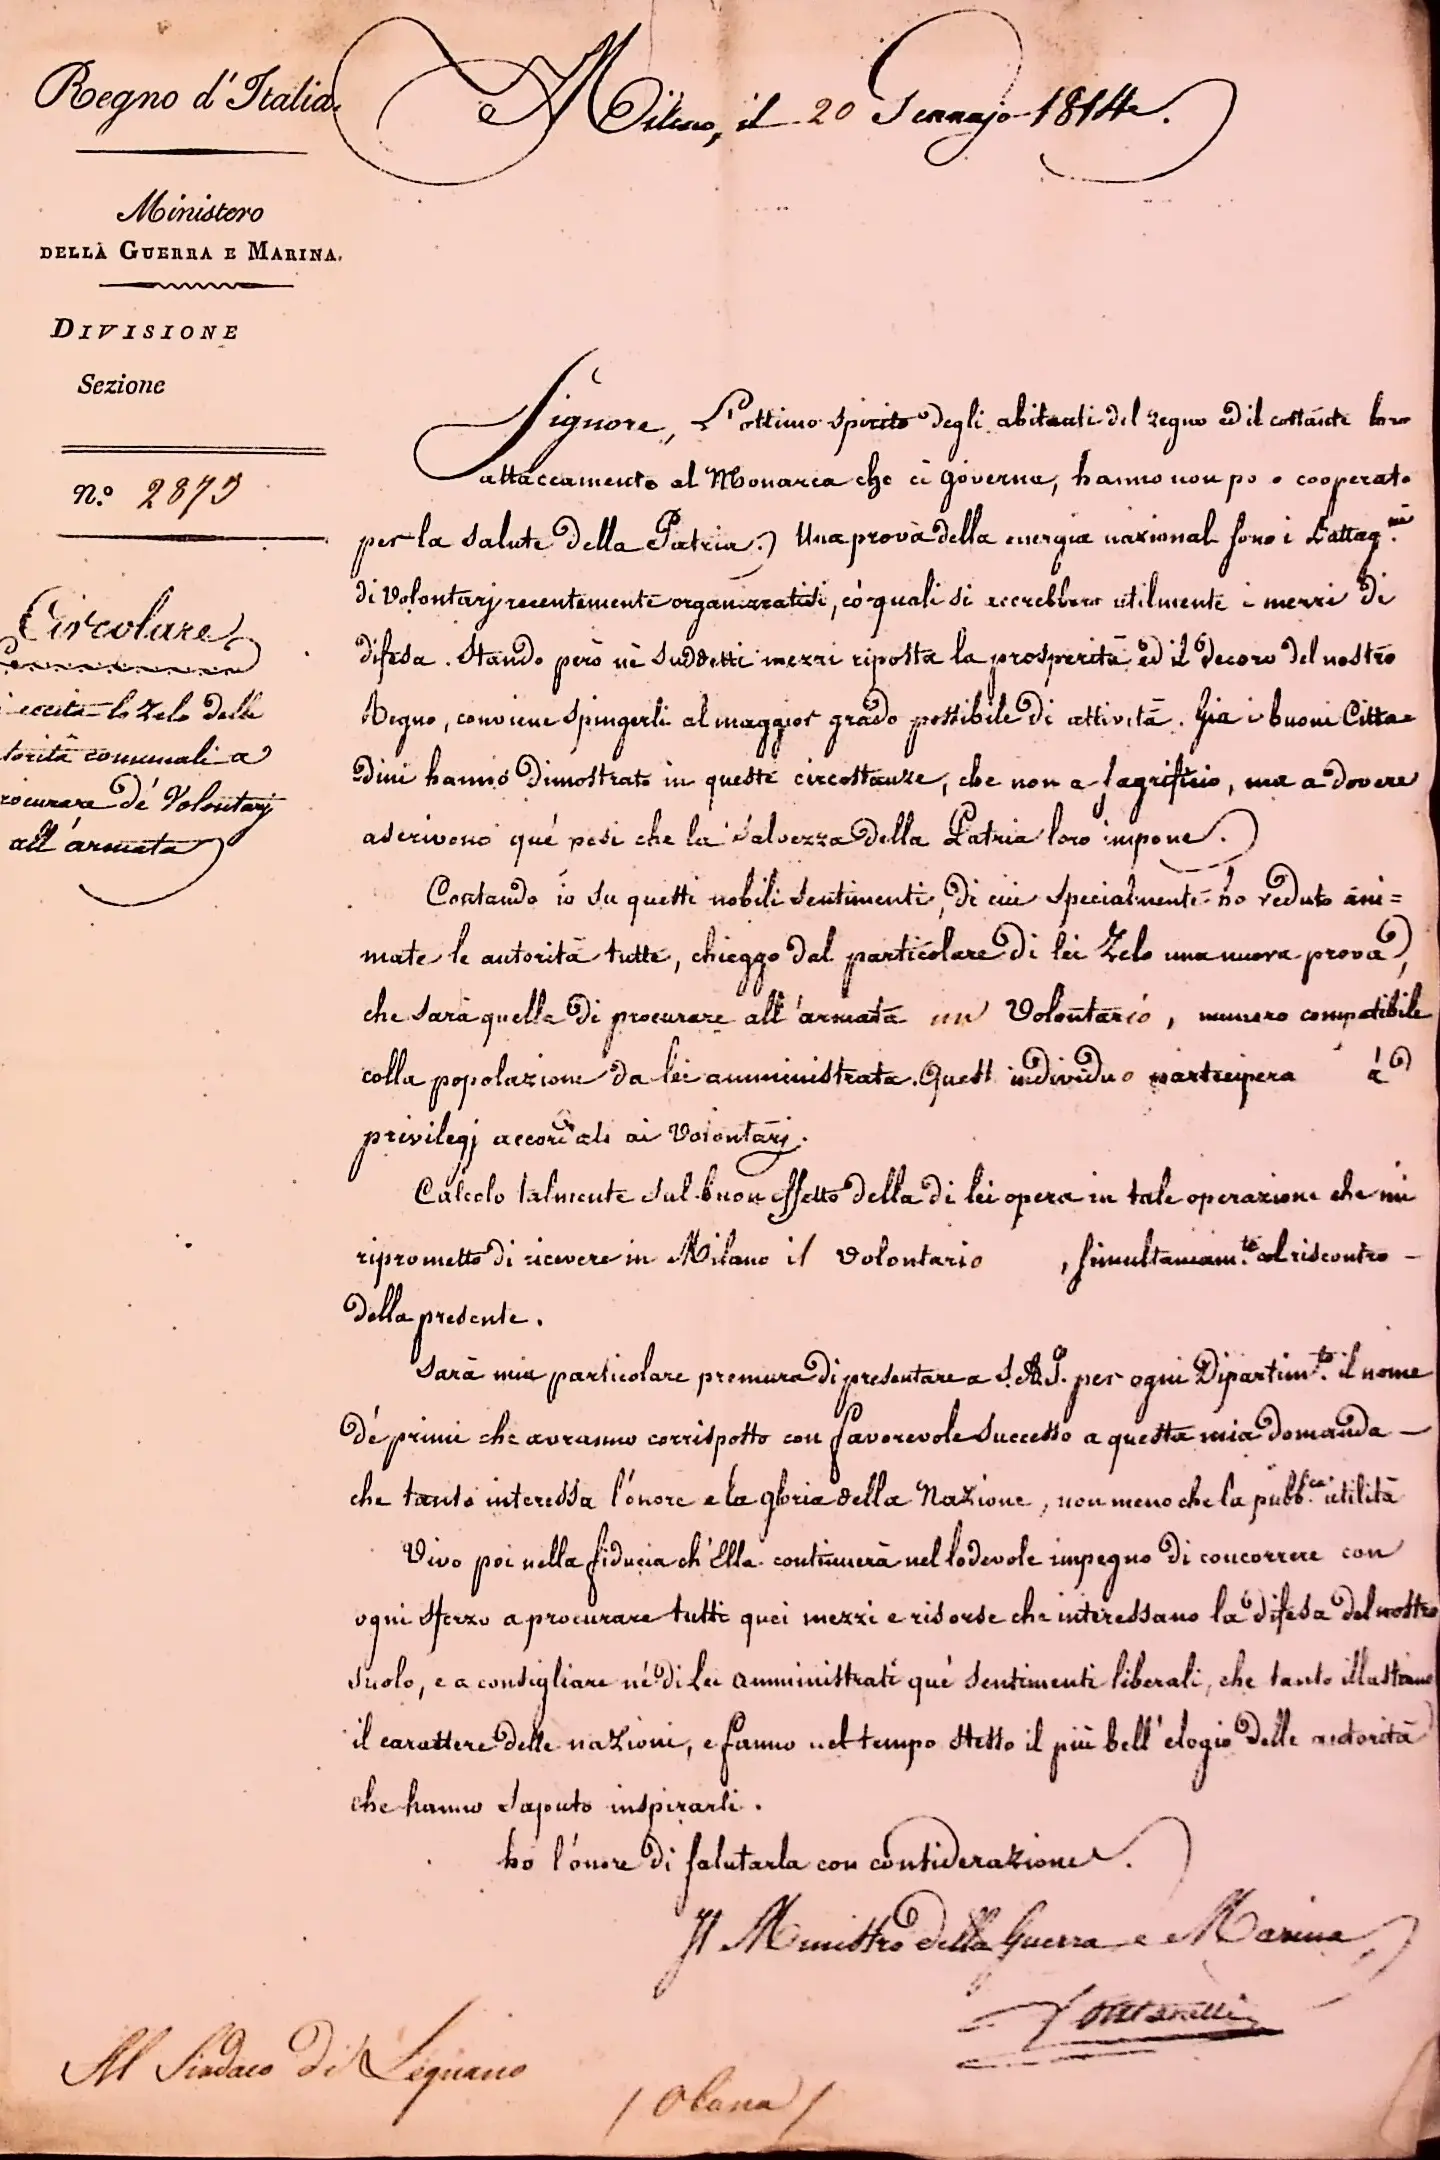 Regno d'Italia.
Milano, il 20 Gennajo 1814.
Ministero
DELLA GUERRA E MARINA.
DIVISIONE
Sezione
N.° 2873
Circolare
eccita lo zelo delle
torità comunali a
rocurare de' Volontarj
all'armata
Signore, L'ottimo spirito degli abitanti del regno ed il costante loro
attaccamento al Monarca che ci governa, hanno non po o cooperato
per la salute della Patria. Una prova della energia nazional sono i Battag.ni
di Volontarj recentemente organizzatisi, co' quali si accrebbero utilmente i mezzi di
difesa. Stando però ne' suddetti mezzi riposta la prosperità ed il decoro del nostro
Regno, conviene spingerli al maggior grado possibile di attività. Già i buoni Citta=
dini hanno dimostrato in queste circostanze, che non a sagrificio, ma a dovere
ascrivono que' pesi che la salvezza della Patria loro impone.
Contando io su questi nobili sentimenti, di cui specialmente ho veduto ani=
mate le autorità tutte, chieggo dal particolare di lei Zelo una nuova prova,
che sarà quella di procurare all'armata un Volontario, numero compatibile
colla popolazione da lei amministrata. Quest individuo parteciperà a'
privilegj accordati ai Volontarj.
Calcolo talmente sul buon effetto della di lei opera in tale operazione che mi
riprometto di ricevere in Milano il Volontario , simultaneam.te col riscontro
della presente.
Sarà mia particolare premura di presentare a S.A.I. per ogni Dipartim.to il nome
de' primi che avranno corrisposto con favorevole successo a questa mia domanda
che tanto interessa l'onore e la gloria della Nazione, non meno che la pubb.ca utilità
Vivo poi nella fiducia ch'Ella continuerà nel lodevole impegno di concorrere con
ogni sforzo a procurare tutti quei mezzi e risorse che interessano la difesa del nostro
suolo, e a consigliare ne' di Lei amministrati que' sentimenti liberali, che tanto illustrano
il carattere delle nazioni, e fanno nel tempo stesso il più bell'elogio delle autorità
che hanno saputo inspirarli.
ho l'onore di salutarla con considerazione.
Il Ministro della Guerra e Marina,
Fontanelli
Al Sindaco di Legnano
/ Olona /